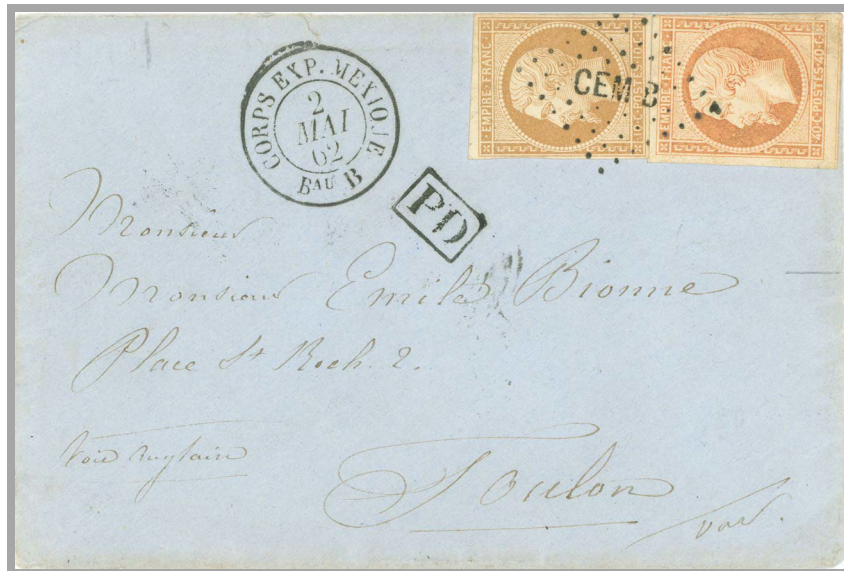 CORPS EXP. MEXIQUE
2
MAI
62
Bau B
EMPIRE · FRANC ·
CEM B
EMPIRE · FRANC ·
40·C·POSTES·40·C
PD
Monsieur
Monsieur Emile Bionne
Place St Roch. 2.
Voie anglaise
Toulon
Var.